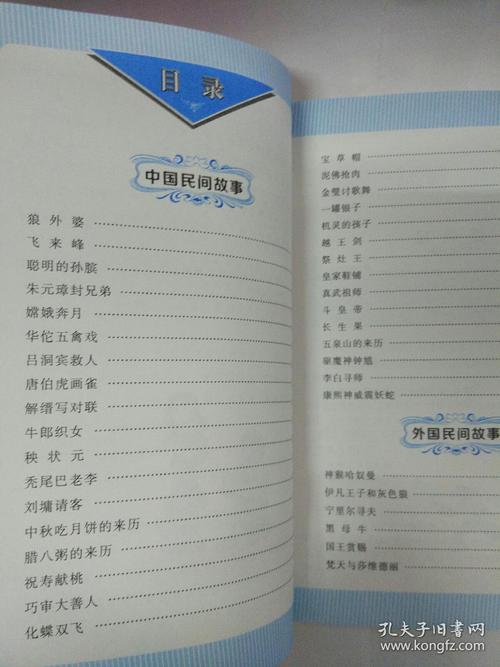 目录
中国民间故事
狼外婆
飞来峰
聪明的孙膑
朱元璋封兄弟
嫦娥奔月
华佗五禽戏
吕洞宾救人
唐伯虎画雀
解缙写对联
牛郎织女
秧状元
秃尾巴老李
刘墉请客
中秋吃月饼的来历
腊八粥的来历
祝寿献桃
巧审大善人
化蝶双飞
宝草帽
泥佛抢肉
金璧讨歌舞
一罐银子
机灵的孩子
越王剑
祭灶王
皇家鞋铺
真武祖师
斗皇帝
长生果
五泉山的来历
驱魔神钟馗
李白寻师
康熙神威震妖蛇
外国民间故事
神猴哈奴曼
伊凡王子和灰色狼
宁里尔寻夫
黑母牛
国王赏赐
梵天与莎维德丽
孔夫子旧书网
www.kongfz.com